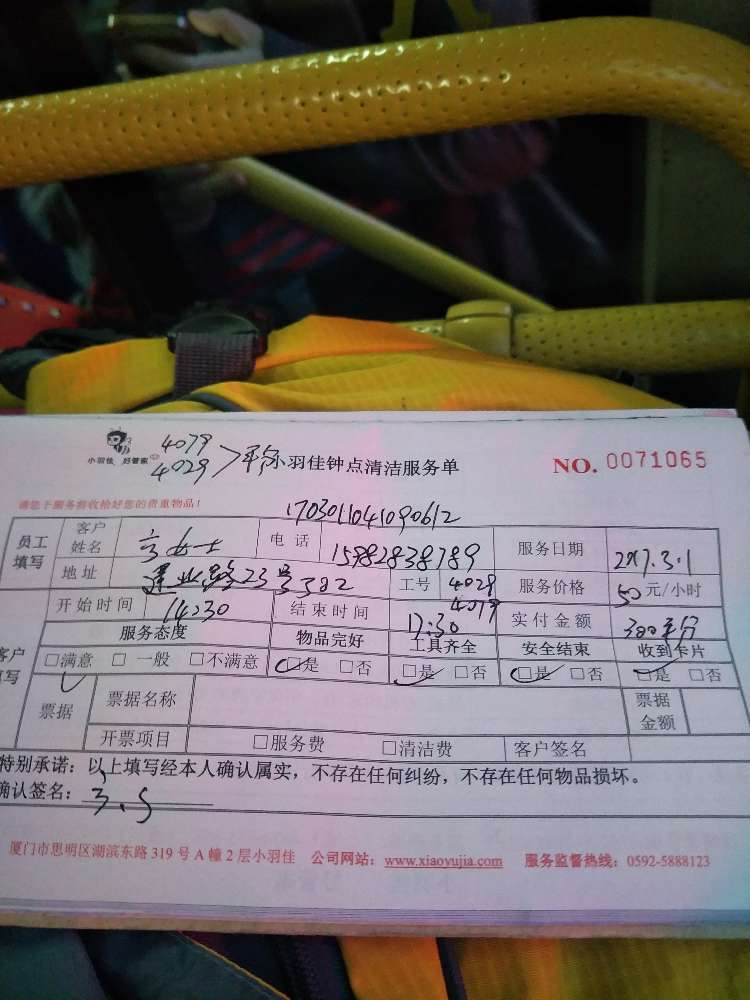 小羽佳 好管家
4079
4029
小羽佳钟点清洁服务单
NO. 0071065
请您于服务前收拾好您的贵重物品!
1703011041090612
员工填写 客户姓名 女士 电话 15982838789 服务日期 2017.3.1
地址 建业路23号302 工号 4029 4079 服务价格 50元/小时
客户填写 开始时间 14:30 结束时间 17:30 实付金额 300
服务态度 物品完好 工具齐全 安全结束 收到卡片
□满意 □一般 □不满意 □是 □否 □是 □否 □是 □否 □是 □否
票据 票据名称 票据金额
开票项目 □服务费 □清洁费 客户签名
特别承诺:以上填写经本人确认属实,不存在任何纠纷,不存在任何物品损坏。
确认签名:
厦门市思明区湖滨东路 319 号 A 幢 2 层小羽佳 公司网站:www.xiaoyujia.com 服务监督热线:0592-5888123